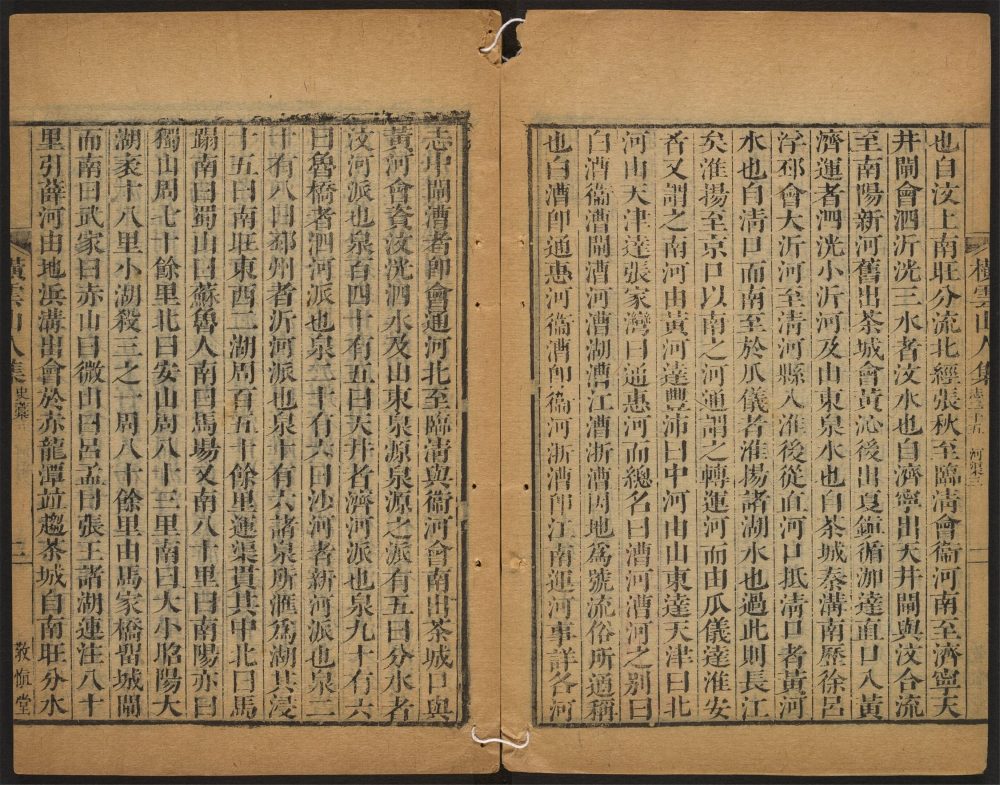 橫雲山人集
河渠
也自汶上南旺分流北經張秋至臨清會衞河南至濟寧天
井閘會泗沂洸三水者汶水也自濟寧出天井閘與汶合流
至南陽新河舊出茶城會黃沁後出夏鎭循泇達直口入黃
濟運者泗洸小沂河及山東泉水也自茶城泰溝南歷徐呂
浮邳會大沂河至淸河縣入淮後從直河口抵淸口者黃河
水也自淸口而南至於瓜儀者淮揚諸湖水也過此則長江
矣淮揚至京口以南之河通謂之轉運河而由瓜儀達淮安
者又謂之南河由黃河達豐沛曰中河山山東達天津曰北
河山天津達張家灣曰通惠河而總名曰漕河漕河之別曰
白漕衞漕閘漕河漕湖漕江漕浙漕因地爲號流俗所通稱
也白漕卽通惠河衞漕卽衞河浙漕卽江南運河事詳各河
志中閘漕者卽會通河北至臨淸與衞河會南出茶城口與
黃河會資汶洸泗水及山東泉源泉源之派有五曰分水者
汶河派也泉百四十有五曰天井者濟河派也泉九十有六
曰魯橋者泗河派也泉二十有六曰沙河者新河派也泉二
十有八曰邳州者沂河派也泉十有六諸泉所滙爲湖其浸
十五曰南旺東西二湖周百五十餘里運渠貫其中北曰馬
蹋南曰蜀山曰蘇魯人南曰馬塲又南八十里曰南陽亦曰
獨山周七十餘里北曰安山周八十三里南曰大小胎陽大
湖袤十八里小湖殺三之一周八十餘里由馬家橋畱城閘
而南曰武家曰赤山曰微山曰呂孟曰張王諸湖連注八十
里引薛河由地浜溝出會於赤龍潭竝趨茶城自南旺分水
橫雲山人集
史藁
二
敬愼堂